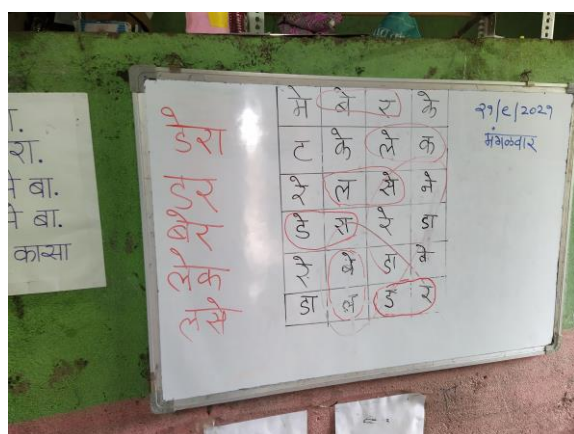 रा.
बा.
बा.
कासा
डेरा
डर
बेस
लेक
लसे
मे बे र के
ट के ले क
रे ल से ने
डे रा रे डा
रे बे डा बे
डा ल ड र
२१/९/२०२१
मंगळवार